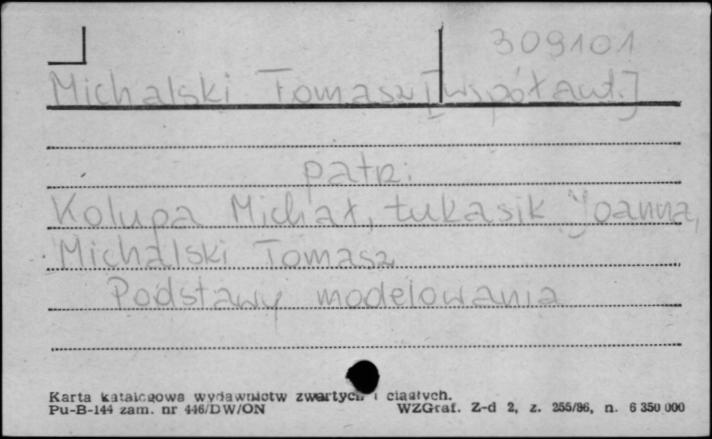 309101
Michalski Tomasz [współaut.]
patrz:
Kolupa Michał, Łukasik Joanna,
Michalski Tomasz
Podstawy modelowania
Karta katalogowa wydawnictw zwartych i ciągłych.
Pu-B-144 zam. nr 446/DW/ON WZGraf. Z-d 2, z. 255/86, n. 6 350 000